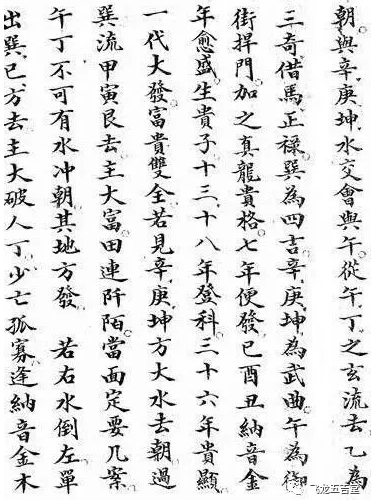 朝與辛庚坤水交會與午從午丁之玄流去乙為
三奇借馬正祿巽為四吉辛庚坤為武曲午為御
街捍門加之真龍貴格七年便發已酉丑納音金
年愈盛生貴子十三十八年登科三十六年貴顯
一代大發富貴雙全若見辛庚坤方大水去朝過
巽流甲寅艮去主大富田連阡陌當面定要几案
午丁不可有水冲朝其地方發 若右水倒左單
出巽已方去主大破人丁少亡孤寡逢納音金木
飞龙五吉堂